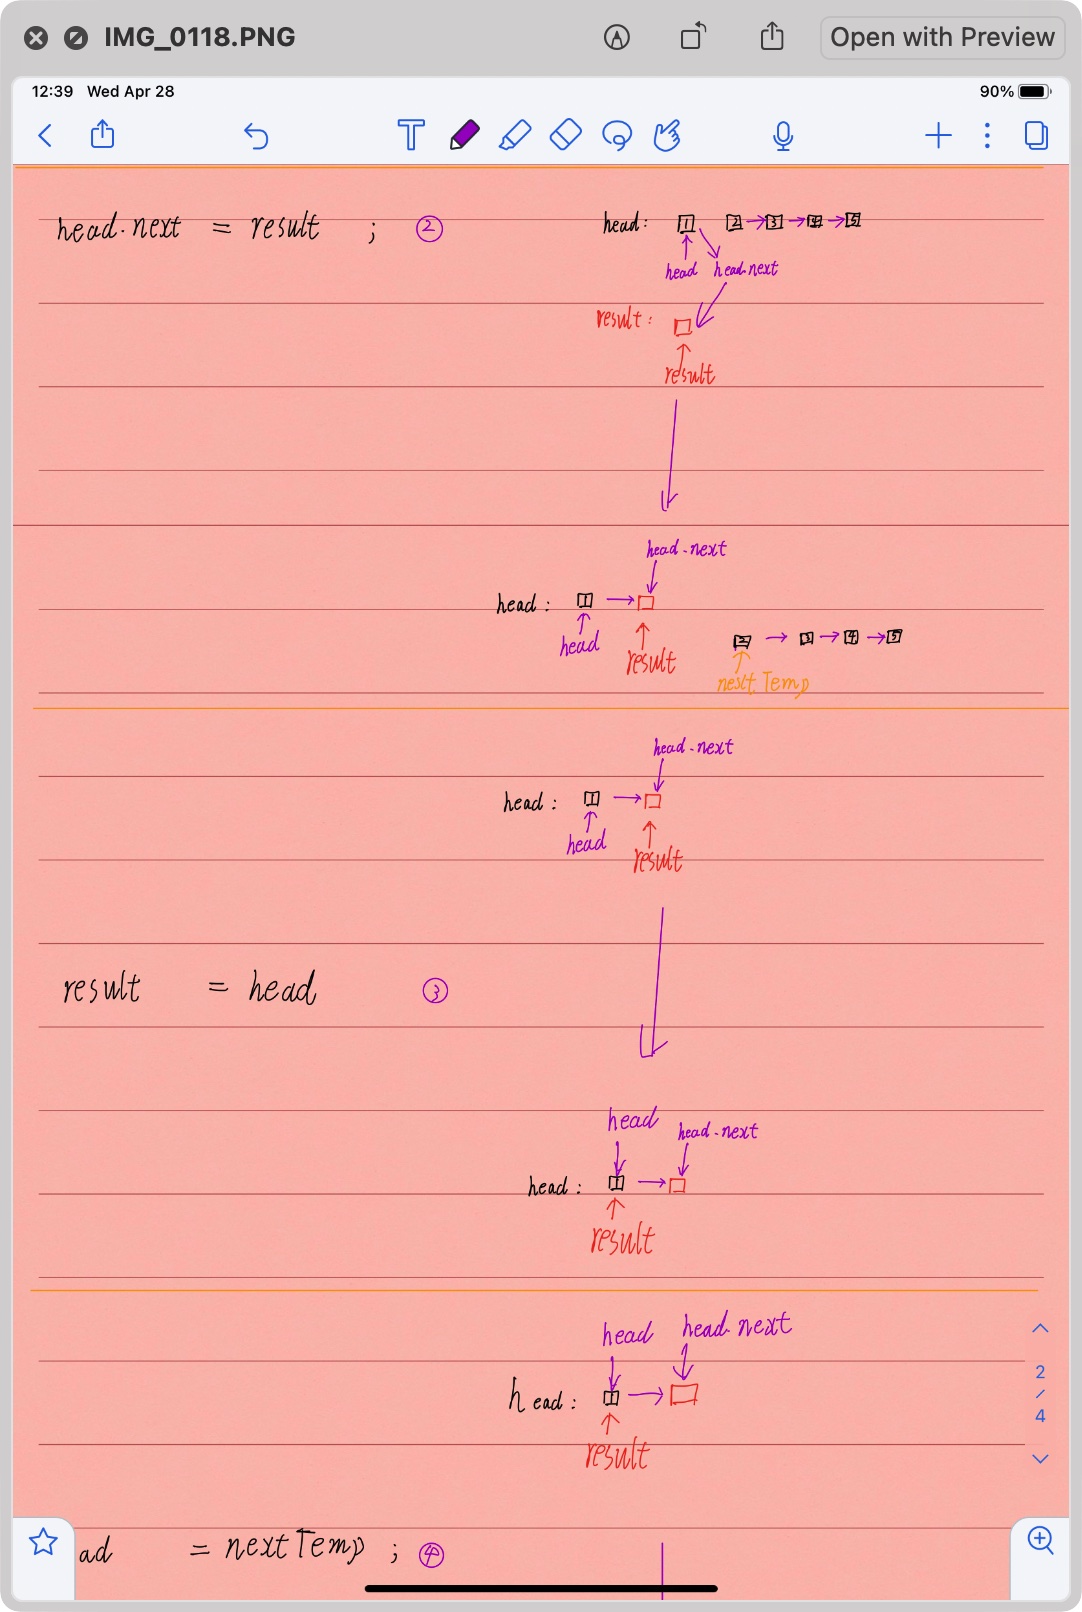 IMG_0118.PNG
Open with Preview
12:39 Wed Apr 28
90%
head.next = result ; ②
head: 1 2 → 3 → 4 → 5
head head.next
result:
result
head.next
head: 1 →
head
result
2 → 3 → 4 → 5
next Temp
head.next
head: 1 →
head
result
result = head ③
head
head.next
head: 1 →
result
head head next
head: 1 →
result
2
4
ad = nextTemp ; ④